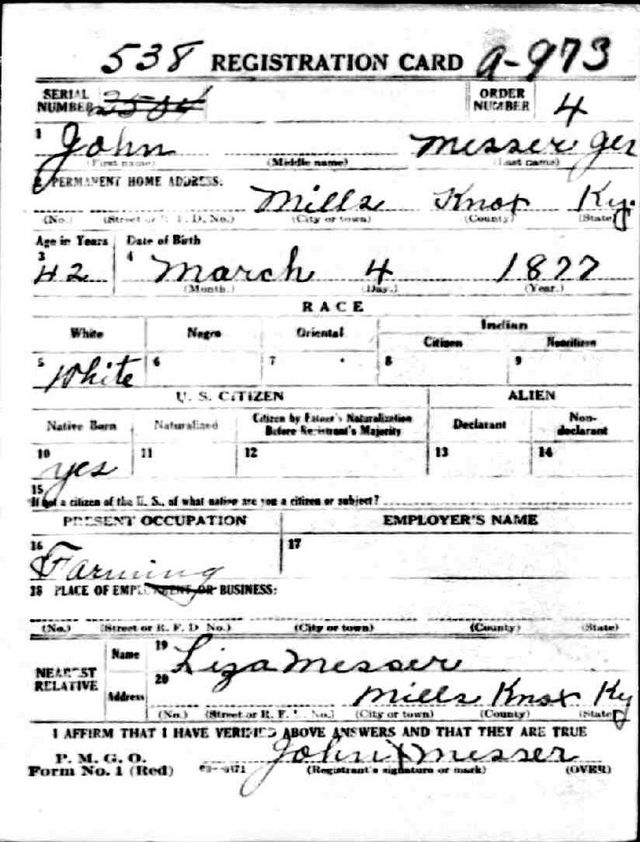 538 REGISTRATION CARD a-973
SERIAL NUMBER 2504 ORDER NUMBER 4
1 John Messer Jer
(First name) (Middle name) (Last name)
2 PERMANENT HOME ADDRESS:
Mills Knox Ky.
(No.) (Street or R. F. D. No.) (City or town) (County) (State)
Age in Years Date of Birth
3 42 4 March 4 1877
(Month.) (Day.) (Year.)
RACE
White Negro Oriental Indian
Citizen Noncitizen
5 White 6 7 8 9
U. S. CITIZEN ALIEN
Native Born Naturalized Citizen by Father's Naturalization Before Registrant's Majority Declarant Non-declarant
10 yes 11 12 13 14
15
If not a citizen of the U. S., of what nation are you a citizen or subject?
PRESENT OCCUPATION EMPLOYER'S NAME
16 Farming 17
18 PLACE OF EMPLOYMENT OR BUSINESS:
(No.) (Street or R. F. D. No.) (City or town) (County) (State)
NEAREST RELATIVE Name 19 Liza Messer
Address 20 Mills Knox Ky
(No.) (Street or R. F. D. No.) (City or town) (County) (State)
I AFFIRM THAT I HAVE VERIFIED ABOVE ANSWERS AND THAT THEY ARE TRUE
P. M. G. O.
Form No. 1 (Red) John X Messer
(Registrant's signature or mark) (OVER)